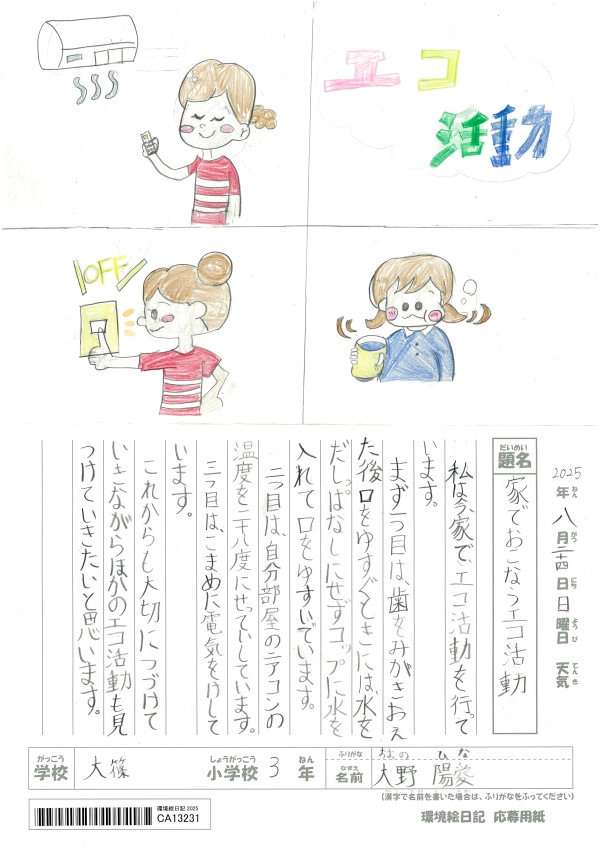 エコ
活動
OFF
2025年八月二十四日日曜日 天気
ねん がつ にち ようび てんき
だいめい
題名
家でおこなうエコ活動
私は今、家で、エコ活動を行って
います。
まず一つ目は、歯をみがきおえ
た後口をゆすぐときには、水を
だしっぱなしにせずコップに水を
入れて口をゆすいでいます。
二つ目は、自分部屋のエアコンの
温度を二十八度にせっていしています。
三つ目は、こまめに電気をけして
います。
これからも大切につづけて
いきながらほかのエコ活動も見
つけていきたいと思います。
がっこう しょうがっこう ねん
学校 大篠 小学校 3年
ふりがな おおの ひな
なまえ
名前 大野 陽愛
(漢字で名前を書いた場合は、ふりがなをふってください)
環境絵日記 2025
CA13231
環境絵日記 応募用紙